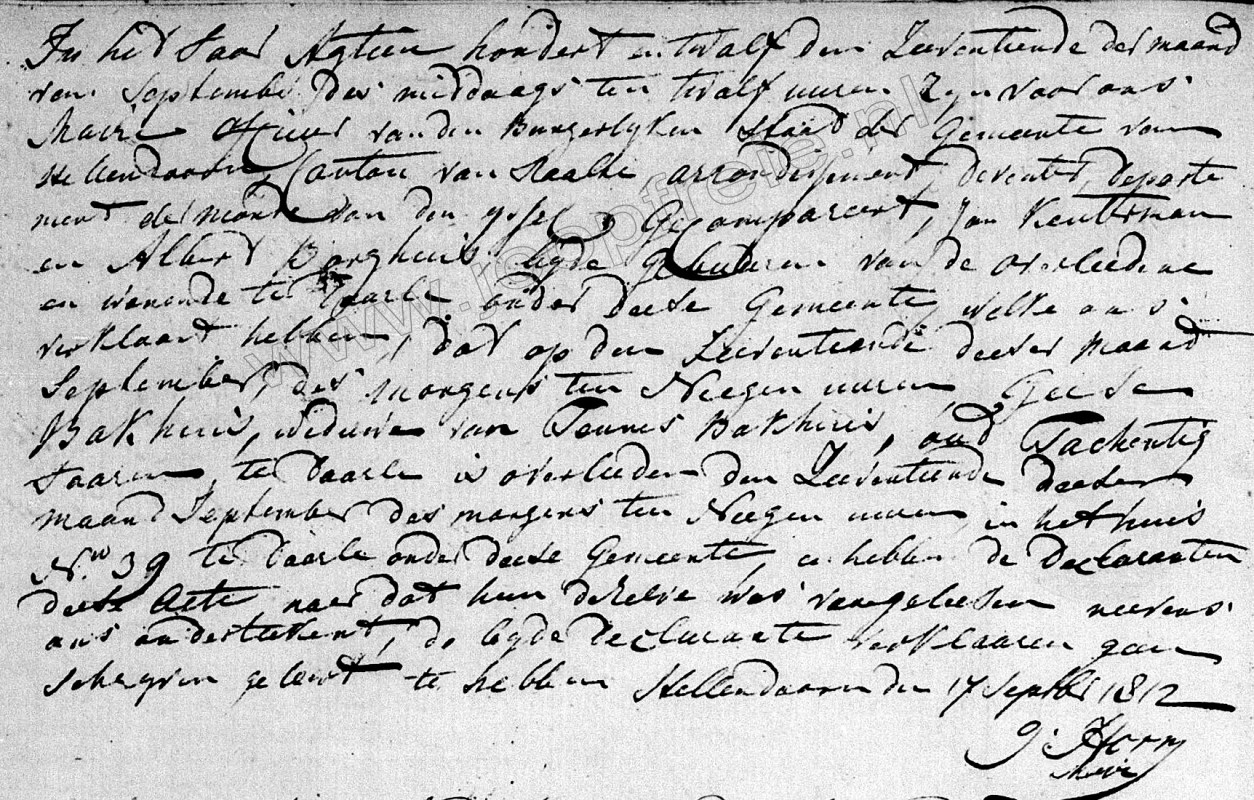 In het Jaar Agtien hondert en twalf den Zeeventiende der maand
van September des middaags ten twalf uuren Zyn voor ons
Maire Officier van den Burgerlyken Staad der Gemeente van
Hellendoorn, Canton van Raalte arrondissement deventer, departe
ment der monde van den yssel, Gecompareert, Jan Keuterman
en Albert Borghuis byde Gebuuren van de overleedene
en wonende te Daarle onder deese Gemeente, welke ons
verklaart hebben, dat op den Zeeventiende deeser Maand
September, des morgens ten Neegen uuren Geese
Bakhuis, weduwe van Teunes Bakhuis, oud Tachentig
Jaaren, te Daarle is overleeden den Zeeventiende deeser
maand September des morgens ten Neegen uuren in het huis
N.ro 39 te Daarle onder deese Gemeente, en hebben de Declaranten
deese Acte, naer dat hun deselve was voorgeleesen neevens
ons ondertekent, de byde Declarante verklaaren geen
schryven geleert te hebben Hellendoorn den 17 Septbr 1812
Maire
www.jeppfreie.nl